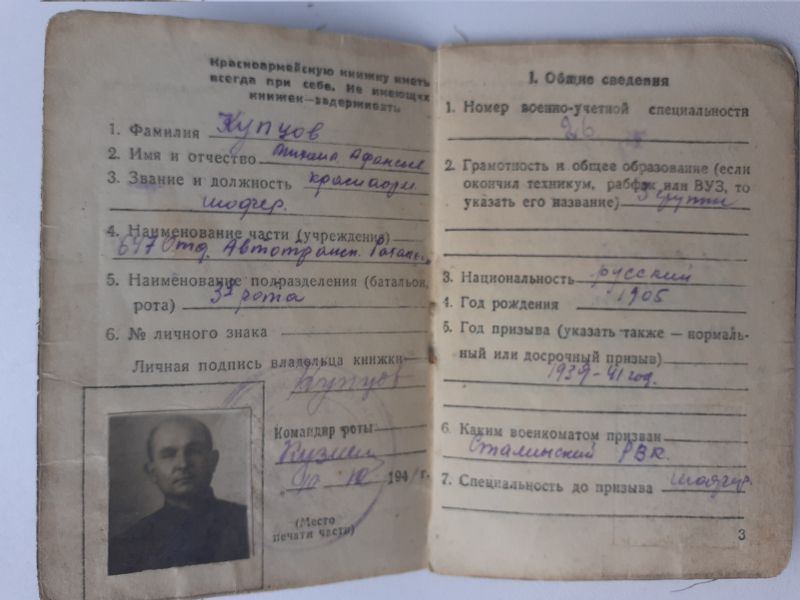 Красноармейскую книжку иметь
всегда при себе. Не имеющих
книжек—задерживать
1. Фамилия Купцов
2. Имя и отчество
3. Звание и должность красноарм.
шофер.
4. Наименование части (учреждения)
697 Отд. Автотрансп.
5. Наименование подразделения (батальон,
рота) 3я рота
6. № личного знака
Личная подпись владельца книжки
Купцов
Командир роты
10 194 г.
(Место
печати части)
I. Общие сведения
1. Номер военно-учетной специальности
26
2. Грамотность и общее образование (если
окончил техникум, рабфак или ВУЗ, то
указать его название) 3 группы
3. Национальность русский
4. Год рождения 1905
5. Год призыва (указать также — нормаль-
ный или досрочный призыв)
1939-41 год.
6. Каким военкоматом призван
Сталинский РВК.
7. Специальность до призыва шофер
3